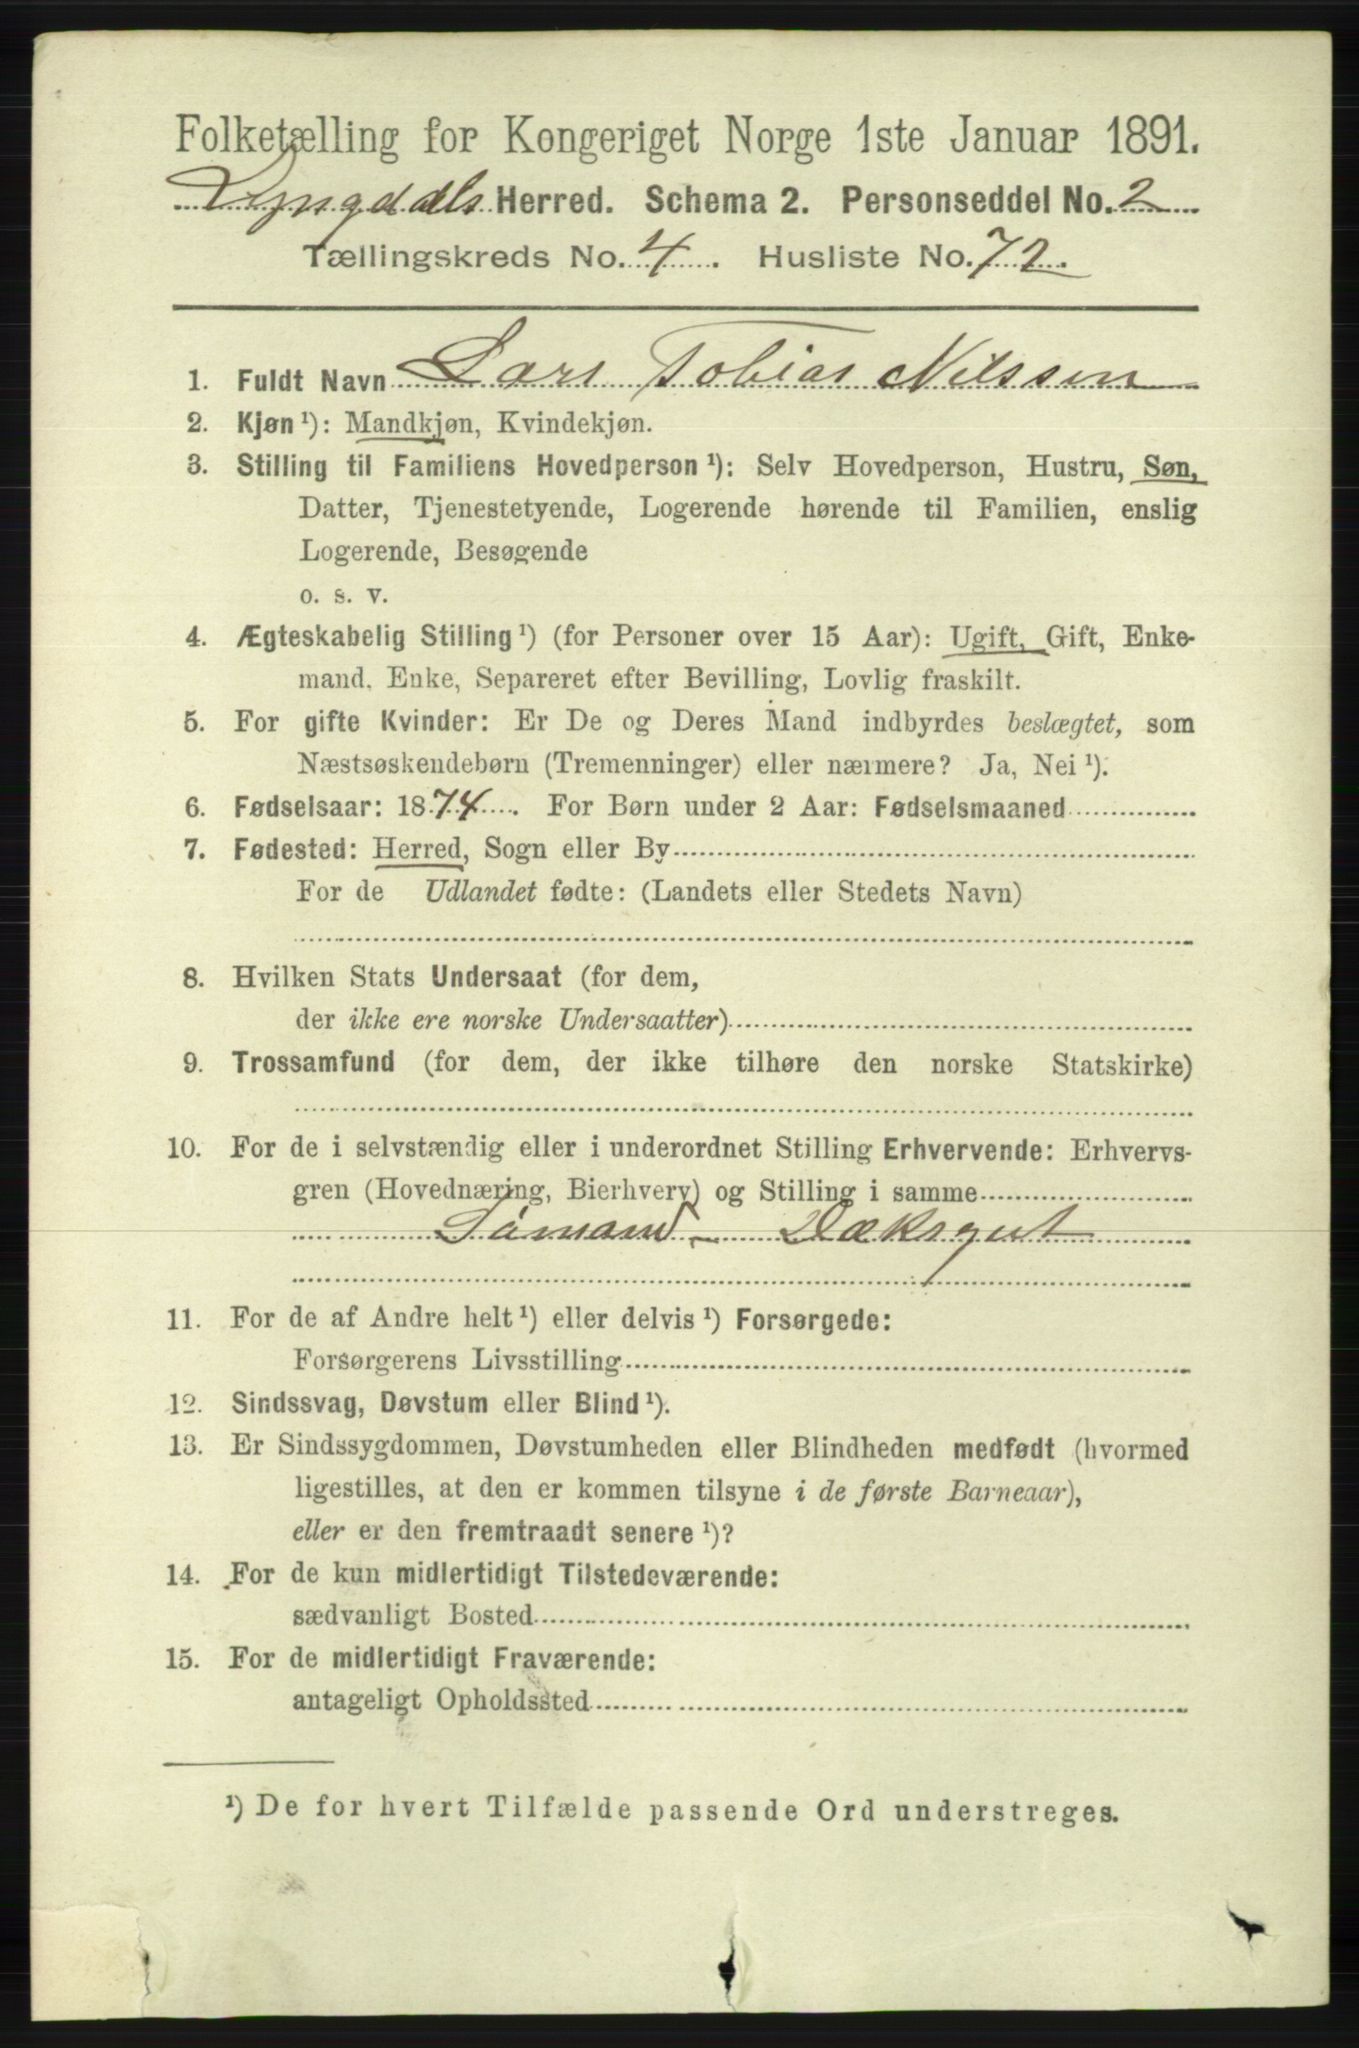 Folketælling for Kongeriget Norge 1ste Januar 1891.
Lyngdals Herred. Schema 2. Personseddel No. 2
Tællingskreds No. 4. Husliste No. 72.
1. Fuldt Navn Lars Tobias Nilssen
2. Kjøn¹): Mandkjøn, Kvindekjøn.
3. Stilling til Familiens Hovedperson¹): Selv Hovedperson, Hustru, Søn,
Datter, Tjenestetyende, Logerende hørende til Familien, enslig
Logerende, Besøgende
o. s. v.
4. Ægteskabelig Stilling¹) (for Personer over 15 Aar): Ugift, Gift, Enke-
mand, Enke, Separeret efter Bevilling, Lovlig fraskilt.
5. For gifte Kvinder: Er De og Deres Mand indbyrdes beslægtet, som
Næstsøskendebørn (Tremenninger) eller nærmere? Ja, Nei¹).
6. Fødselsaar: 1874. For Børn under 2 Aar: Fødselsmaaned
7. Fødested: Herred, Sogn eller By
For de Udlandet fødte: (Landets eller Stedets Navn)
8. Hvilken Stats Undersaat (for dem,
der ikke ere norske Undersaatter)
9. Trossamfund (for dem, der ikke tilhøre den norske Statskirke)
10. For de i selvstændig eller i underordnet Stilling Erhvervende: Erhvervs-
gren (Hovednæring, Bierhverv) og Stilling i samme
Sømand - Dæksgut
11. For de af Andre helt¹) eller delvis¹) Forsørgede:
Forsørgerens Livsstilling
12. Sindssvag, Døvstum eller Blind¹).
13. Er Sindssygdommen, Døvstumheden eller Blindheden medfødt (hvormed
ligestilles, at den er kommen tilsyne i de første Barneaar),
eller er den fremtraadt senere¹)?
14. For de kun midlertidigt Tilstedeværende:
sædvanligt Bosted
15. For de midlertidigt Fraværende:
antageligt Opholdssted
¹) De for hvert Tilfælde passende Ord understreges.